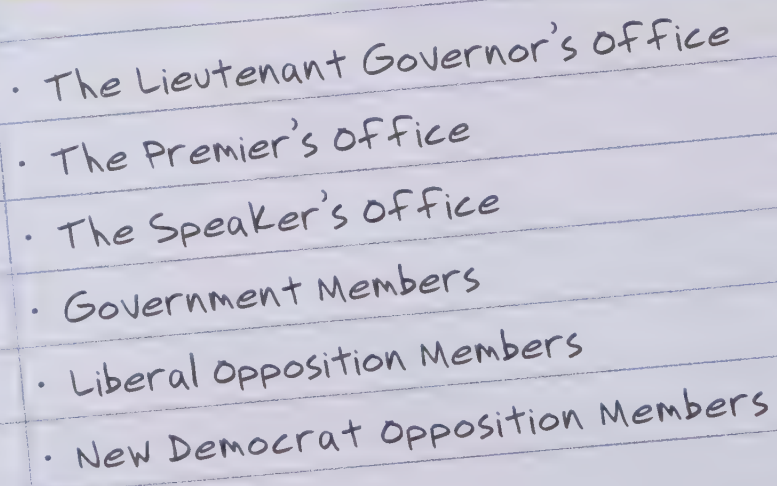 · The Lieutenant Governor's office
· The Premier's office
· The Speaker's office
· Government Members
· Liberal Opposition Members
· New Democrat Opposition Members